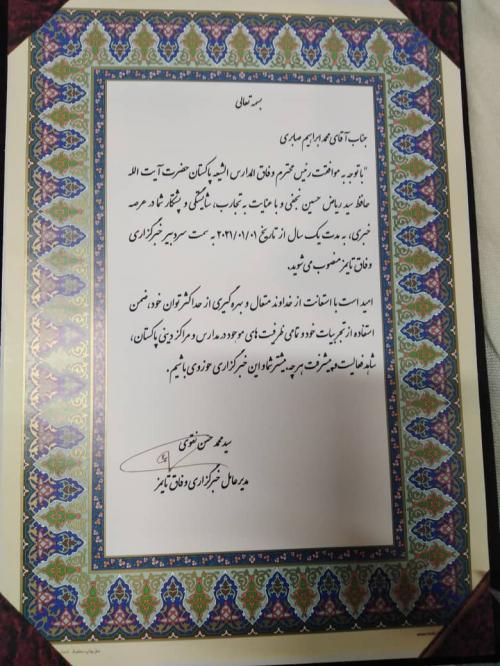 بسمه تعالی
جناب آقای محمد ابراهیم صابری
"با توجه به موافقت رئیس محترم وفاق المدارس الشیعه پاکستان حضرت آیت الله
حافظ سید ریاض حسین نجفی و با عنایت به تجارب، شایستگی و پشتکار شما در عرصه
خبری، به مدت یک سال از تاریخ ۲۰۲۱/۰۱/۰۱ به سمت سردبیر خبرگزاری
وفاق تایمز منصوب می‌شوید.
امید است با استعانت از خداوند متعال و بهره گیری از حداکثر توان خود، ضمن
استفاده از تجربیات خود و تمامی ظرفیت های موجود در مدارس و مراکز دینی پاکستان،
شاهد فعالیت و پیشرفت هرچه بیشتر شما و این خبرگزاری حوزوی باشیم.
سید محمد حسن نقوی
مدیر عامل خبرگزاری وفاق تایمز